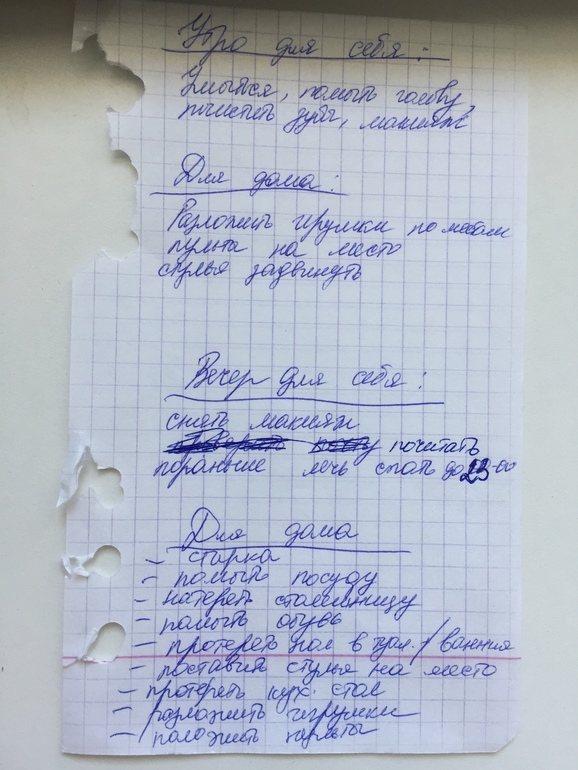 Утро для себя:
Умыться, помыть голову,
почистить зубы, макияж
Для дома:
Разложить игрушки по местам
пульты на место
стулья задвинуть
Вечер для себя:
снять макияж
почитать
пораньше лечь спать до 23-00
Для дома
- стирка
- помыть посуду
- натереть столешницу
- помыть обувь
- протереть пол в туал./ванная
- поставить стулья на место
- протереть кух. стол
- разложить игрушки
- положить пульты